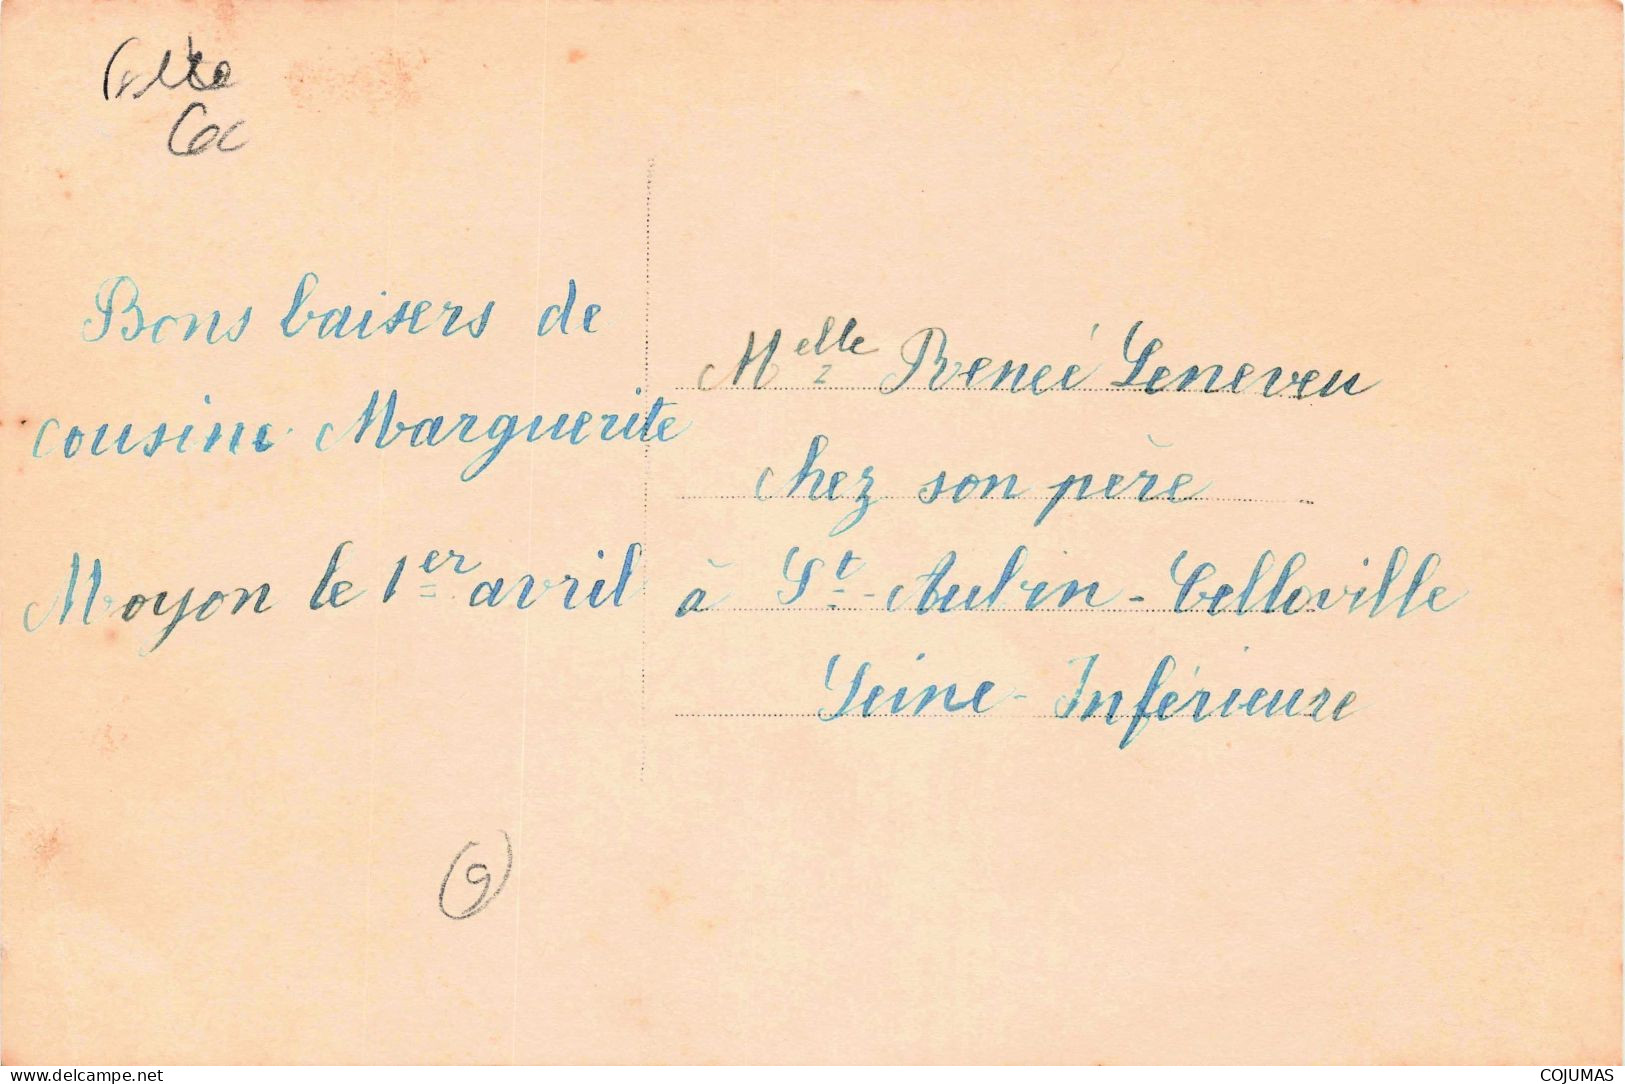 Bons baisers de
cousine Marguerite
Moyon le 1er avril
Melle Renée Leneveu
chez son père
à St-Aubin-Celloville
Seine-Inférieure
9
www.delcampe.net
COJUMAS